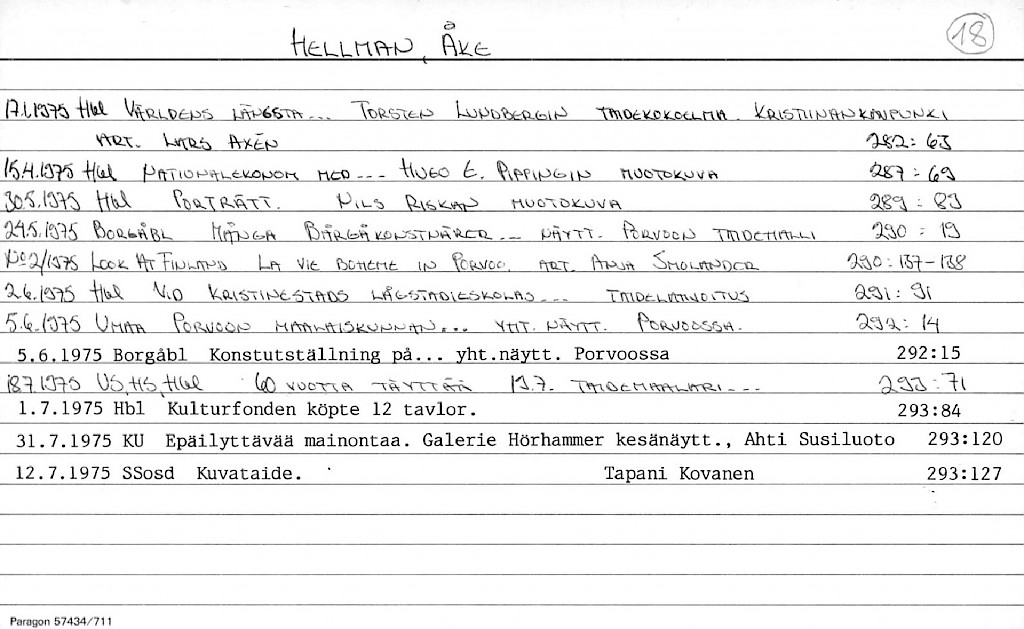 HELLMAN, ÅKE 18
17.1.1975 Hbl VÄRLDENS LÄNGSTA... TORSTEN LUNDBERGIN TAIDEKOKOELMA. KRISTIINANKAUPUNKI
ART. LARS AXÉN 282:63
15.4.1975 Hbl NATIONALEKONOM MED --- HUGO E. PIPPINGIN MUOTOKUVA 287:69
30.5.1975 Hbl PORTRÄTT. NILS RISKAN MUOTOKUVA 289:83
24.5.1975 BORGÅBL MÅNGA BORGÅKONSTNÄRER... NÄYTT. PORVOON TAIDEHALLI 290:19
No 2/1975 LOOK AT FINLAND LA VIE BOHEME IN PORVOO. ART. ANJA SMOLANDER 290:137-138
2.6.1975 Hbl VID KRISTINESTADS LÅGSTADIESKOLAS... TAIDELAHJOITUS 291:91
5.6.1975 UMAA PORVOON MAALAISKUNNAN... YHT. NÄYTT. PORVOOSSA. 292:14
5.6.1975 Borgåbl Konstutställning på... yht.näytt. Porvoossa 292:15
18.7.1975 US, HS, Hbl 60 VUOTTA TÄYTTÄÄ 19.7. TAIDEMAALARI --- 293:71
1.7.1975 Hbl Kulturfonden köpte 12 tavlor. 293:84
31.7.1975 KU Epäilyttävää mainontaa. Galerie Hörhammer kesänäytt., Ahti Susiluoto 293:120
12.7.1975 SSosd Kuvataide. Tapani Kovanen 293:127
Paragon 57434/711